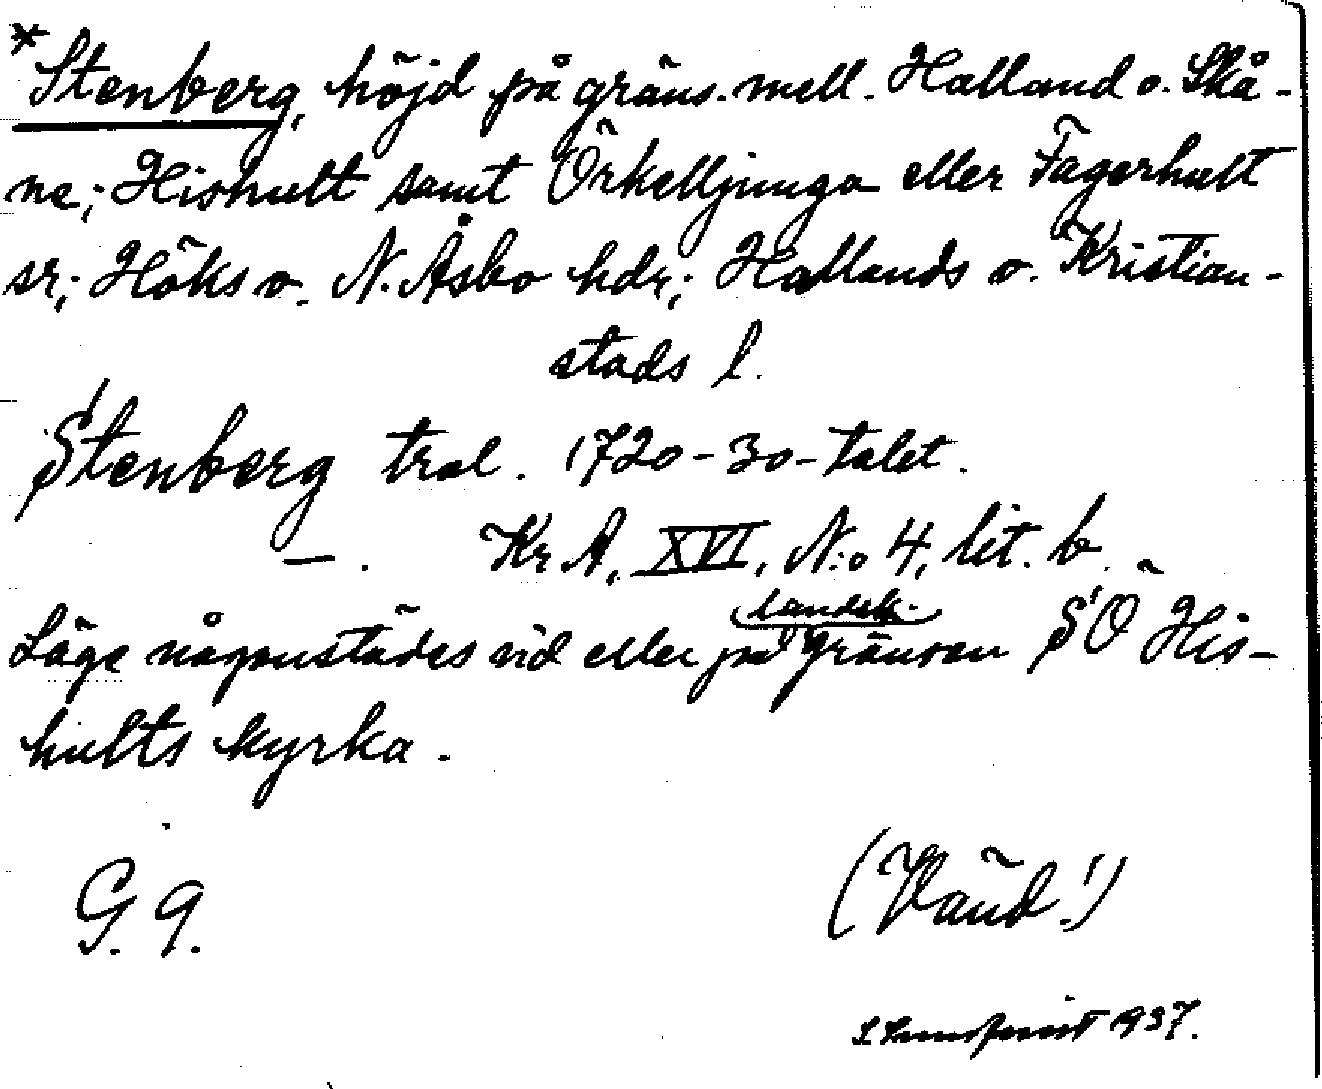 * Stenberg, höjd på gräns. mell. Halland o. Skå-
ne; Hishult samt Örkelljunga eller Fagerhult
sr; Höks o. N. Åsbo hdr; Hallands o. Kristian-
stads l.
Stenberg tral. 1720-30-talet.
—. Kr A, XVI, N:o 4, lit. b.
Läge någonstädes vid eller på landsk. gränsen SÖ His-
hults kyrka.
G. 9.
(Vänd!)
S Lundqvist 1937.